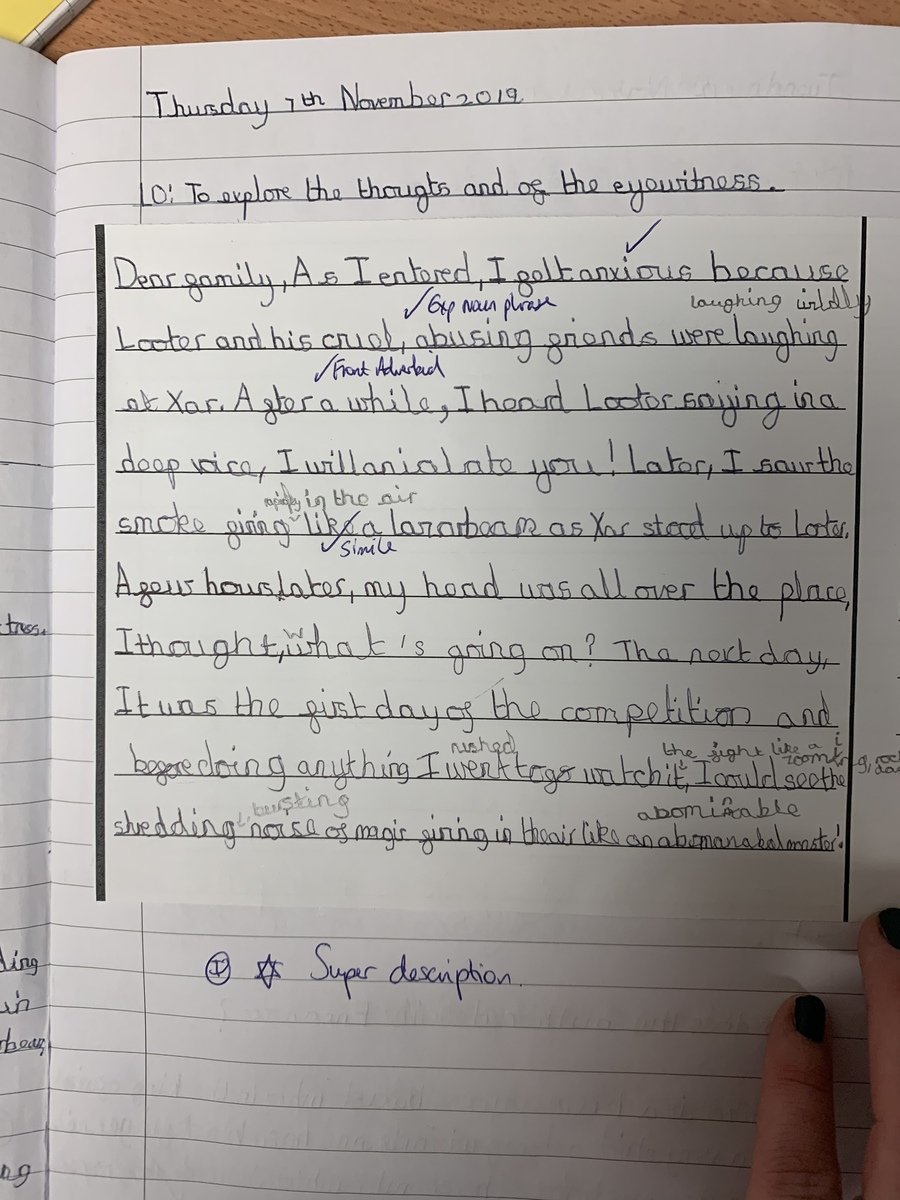 Thursday 7th November 2019
LO: To explore the thougts and of the eyewitness.
Dear family, As I entered, I felt anxious because
✓Exp noun phrase laughing wildly
Looter and his cruel, abusing friends were laughing
✓Front Adverbial
at Xar. After a while, I heard Looter saying in a
deep voice, I will anialate you! Later, I saw the
rapidly in the air
smoke firing like a lazarbeam as Xar stood up to Looter.
✓Simile
A few hours later, my head was all over the place,
I thought, what's going on? The next day,
It was the first day of the competition and
rushed the fight like a
before doing anything I went to go watch it, I could see the
busting abominable
shedding noise of magic firing in the air like an abomanabal monster!
tress.
ding
in
beam,
ng
Super description.